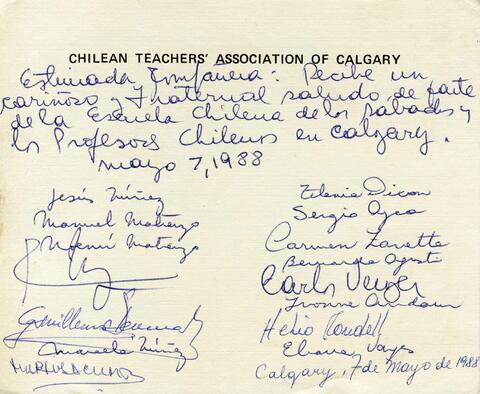 CHILEAN TEACHERS' ASSOCIATION OF CALGARY
Estimada Compañera: Recibe un
cariñoso y fraternal saludo de parte
de la Escuela Chilena de los sábados y
los Profesores Chilenos en Calgary.
mayo 7, 1988
Jesús Núñez
Manuel
Noemí
Guillermo
Marcela Núñez
Zelenia Dixon
Sergio
Carmen
Bernarda
Carlos
Ivonne
Helio
Eliana
Calgary, 7 de Mayo de 1988